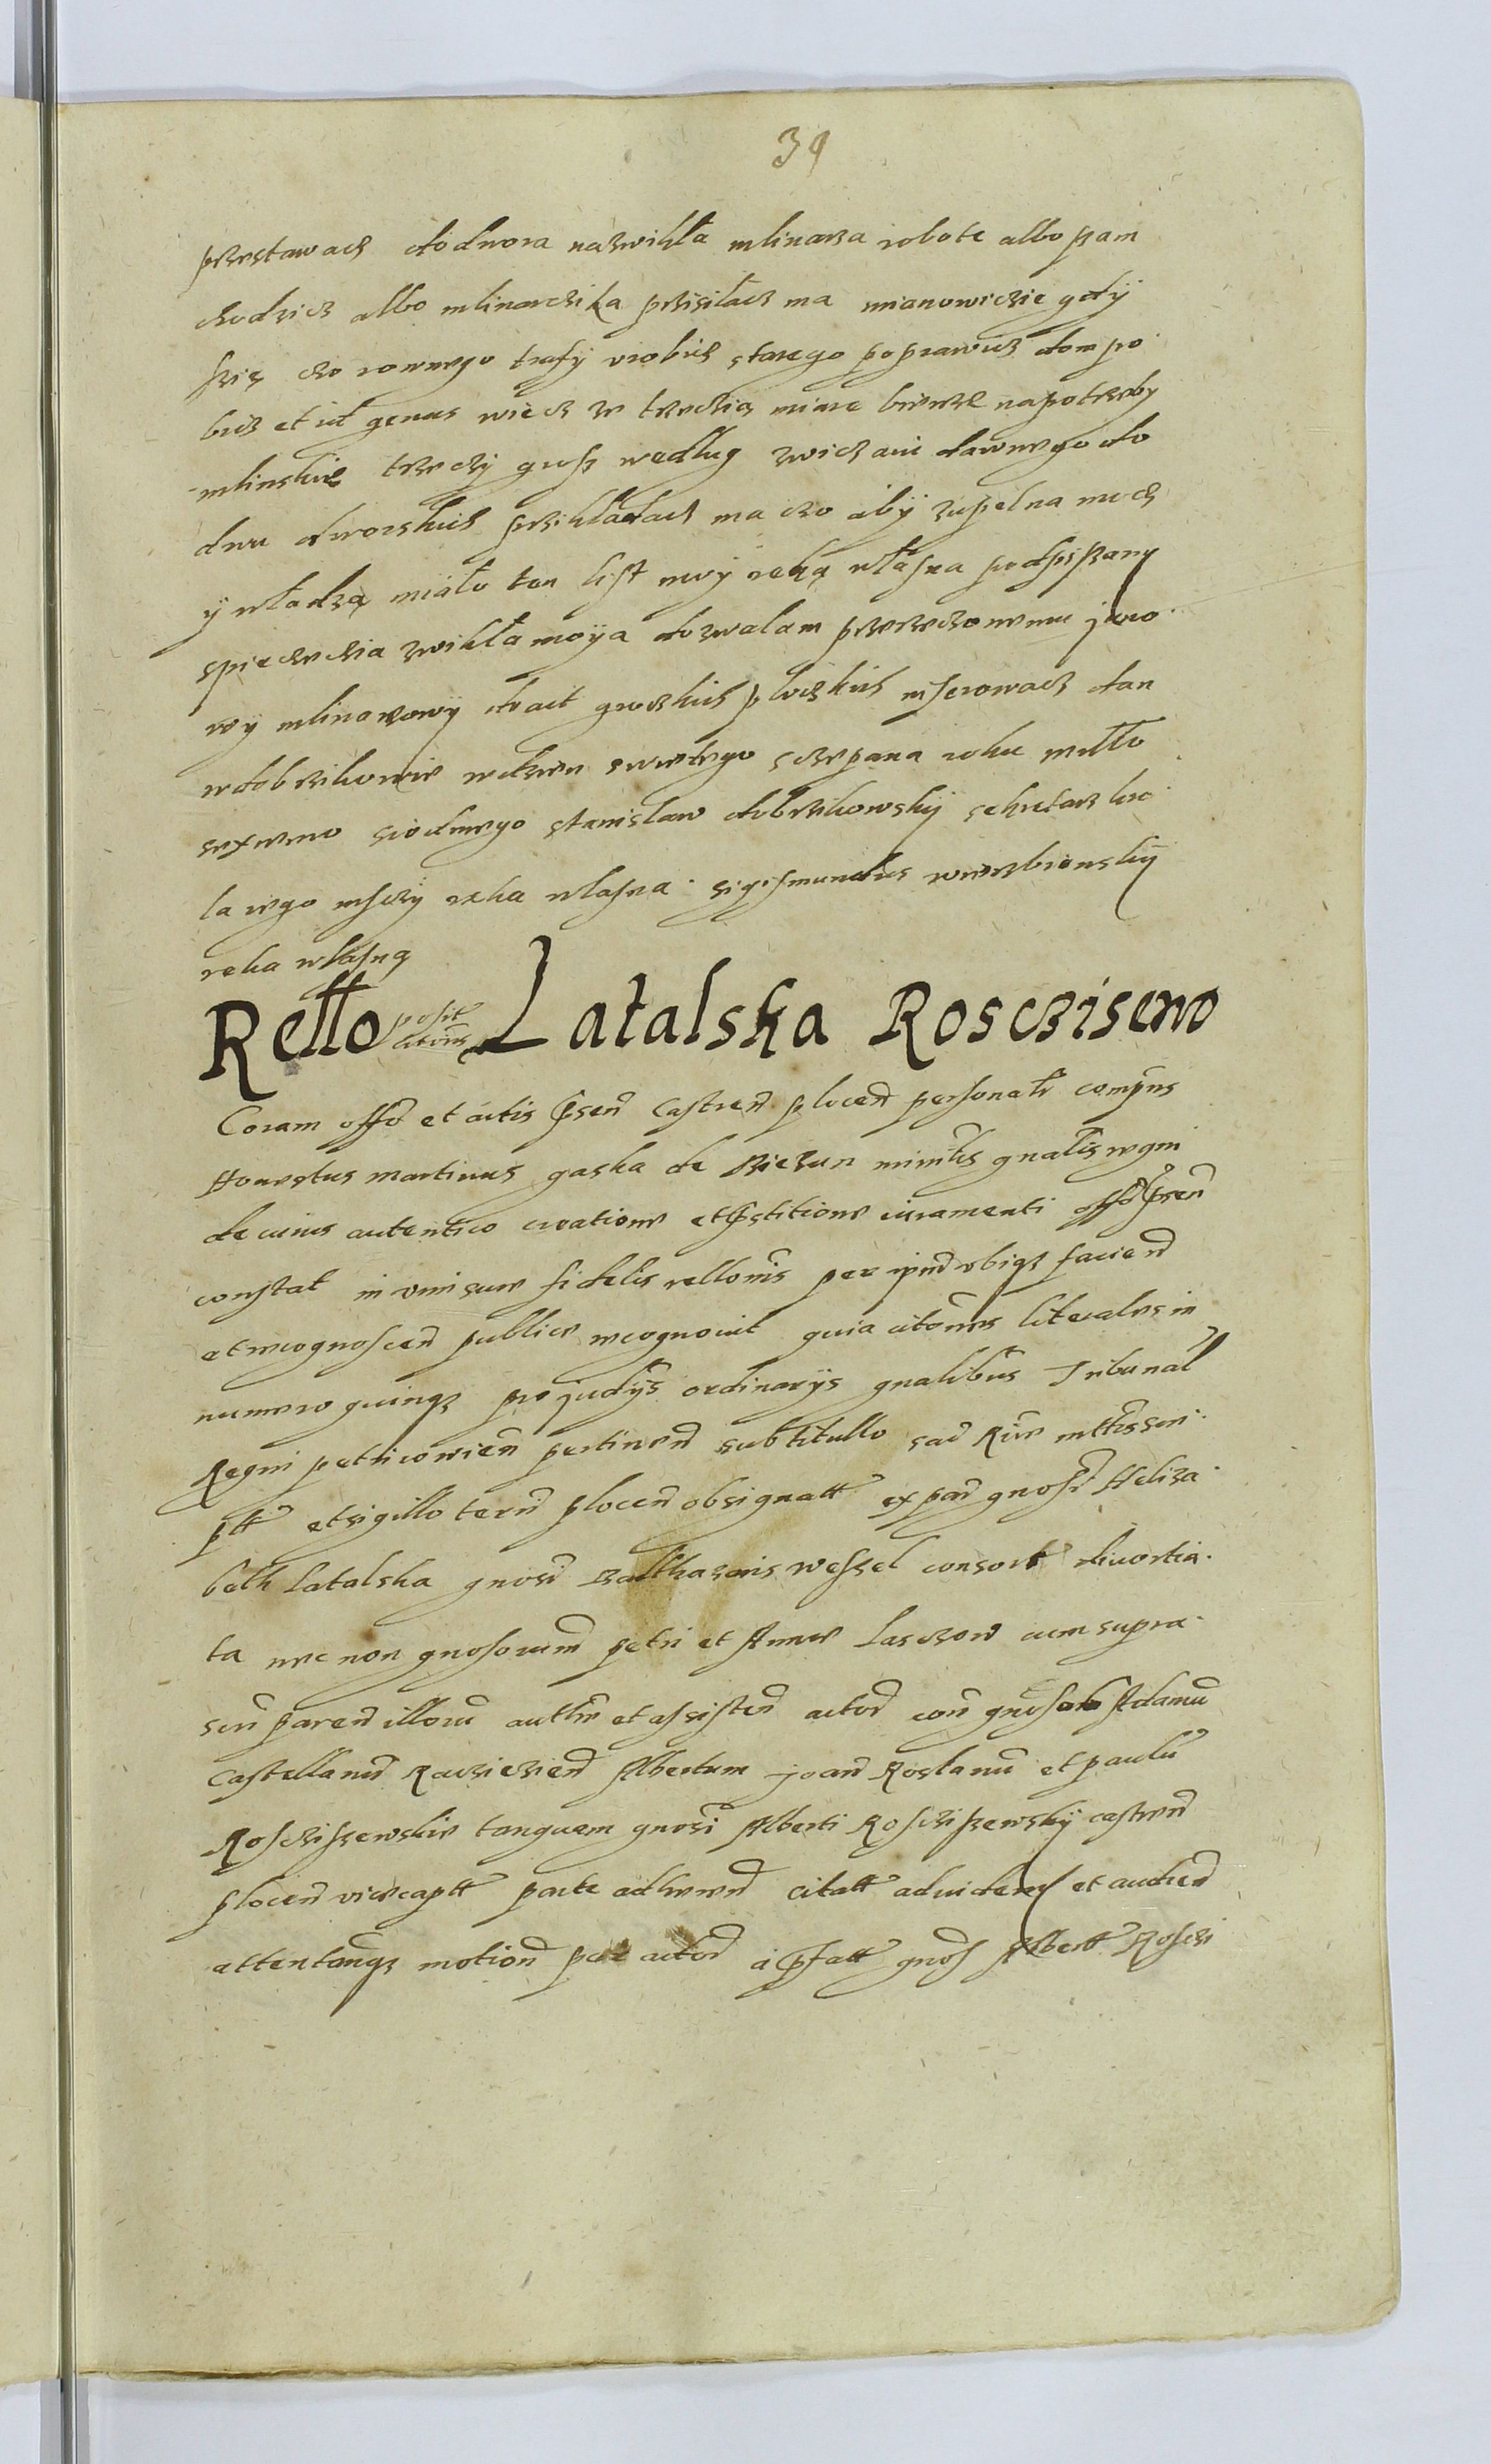 39
przestawacz do dwora nazwikła mlinarza robote albo szam
chodzicz albo mlinarczika przisilacz ma mianowiczie gdÿ
szię czo rownego trafÿ vrobicz starego poprawicz dompo
bicz et id genus wiecz ze trzeczia miare bierze napotrzeby
mlinskie trzeczÿ grosz wedlug zwiczaiu dawnego do
dwu dworskich przikładacz ma czo abÿ zupelna mocz
ÿ władzą miało ten list moÿ reką własna podpiszany
spieczeczia zwikła moÿa dozwalam przerzeczonemu jaro
wÿ mlinarzowÿ do act groczkich płoczkich wserowacz dan
wdobrzikowie wdzien swietego sczepana roku
siodmego stanislaw dobrzikowskÿ sekretarz kro
la iego msczÿ reka własna sigismundus wierzbienskÿ
reka własną
Rello posit citonis Latalska Rosczisewo
Coram offo et actis psen Castren plocen personalr compns
Honestus martinus gaska de Biezun mintrlis gnalis regni
de cuius autentico creatione et pstitione iuramenti offo psen
constat in vim sue fidelis rellonis per ipm vbiqz facien
et recognoscen publice recognouit quia citones literales in
numero quinqz pro judiÿs ordinarÿs gnalibus Tribunal
Regni petricouien pertinen sub titullo sac Rie mttis scri
ptt et sigillo terri plocen obsignatt ex par gnose Heliza
beth Latalska gnosi Balthasaris wessel consort diuortia
ta nec non gnosorum petri et Anne Lasczow cum supra
scri paren illorum authte et assisten actor con gnosos Adamum
Castellanum Racziezien Albertum joan Roslanum et paulum
Rosciszewskie tanquam gnosi Alberti Rosciszewskÿ castren
plocen vicecaptt parte adheren citatt ad viden et audien
attentanqz motion per actor a pfatt gnos Albertt Rosczi